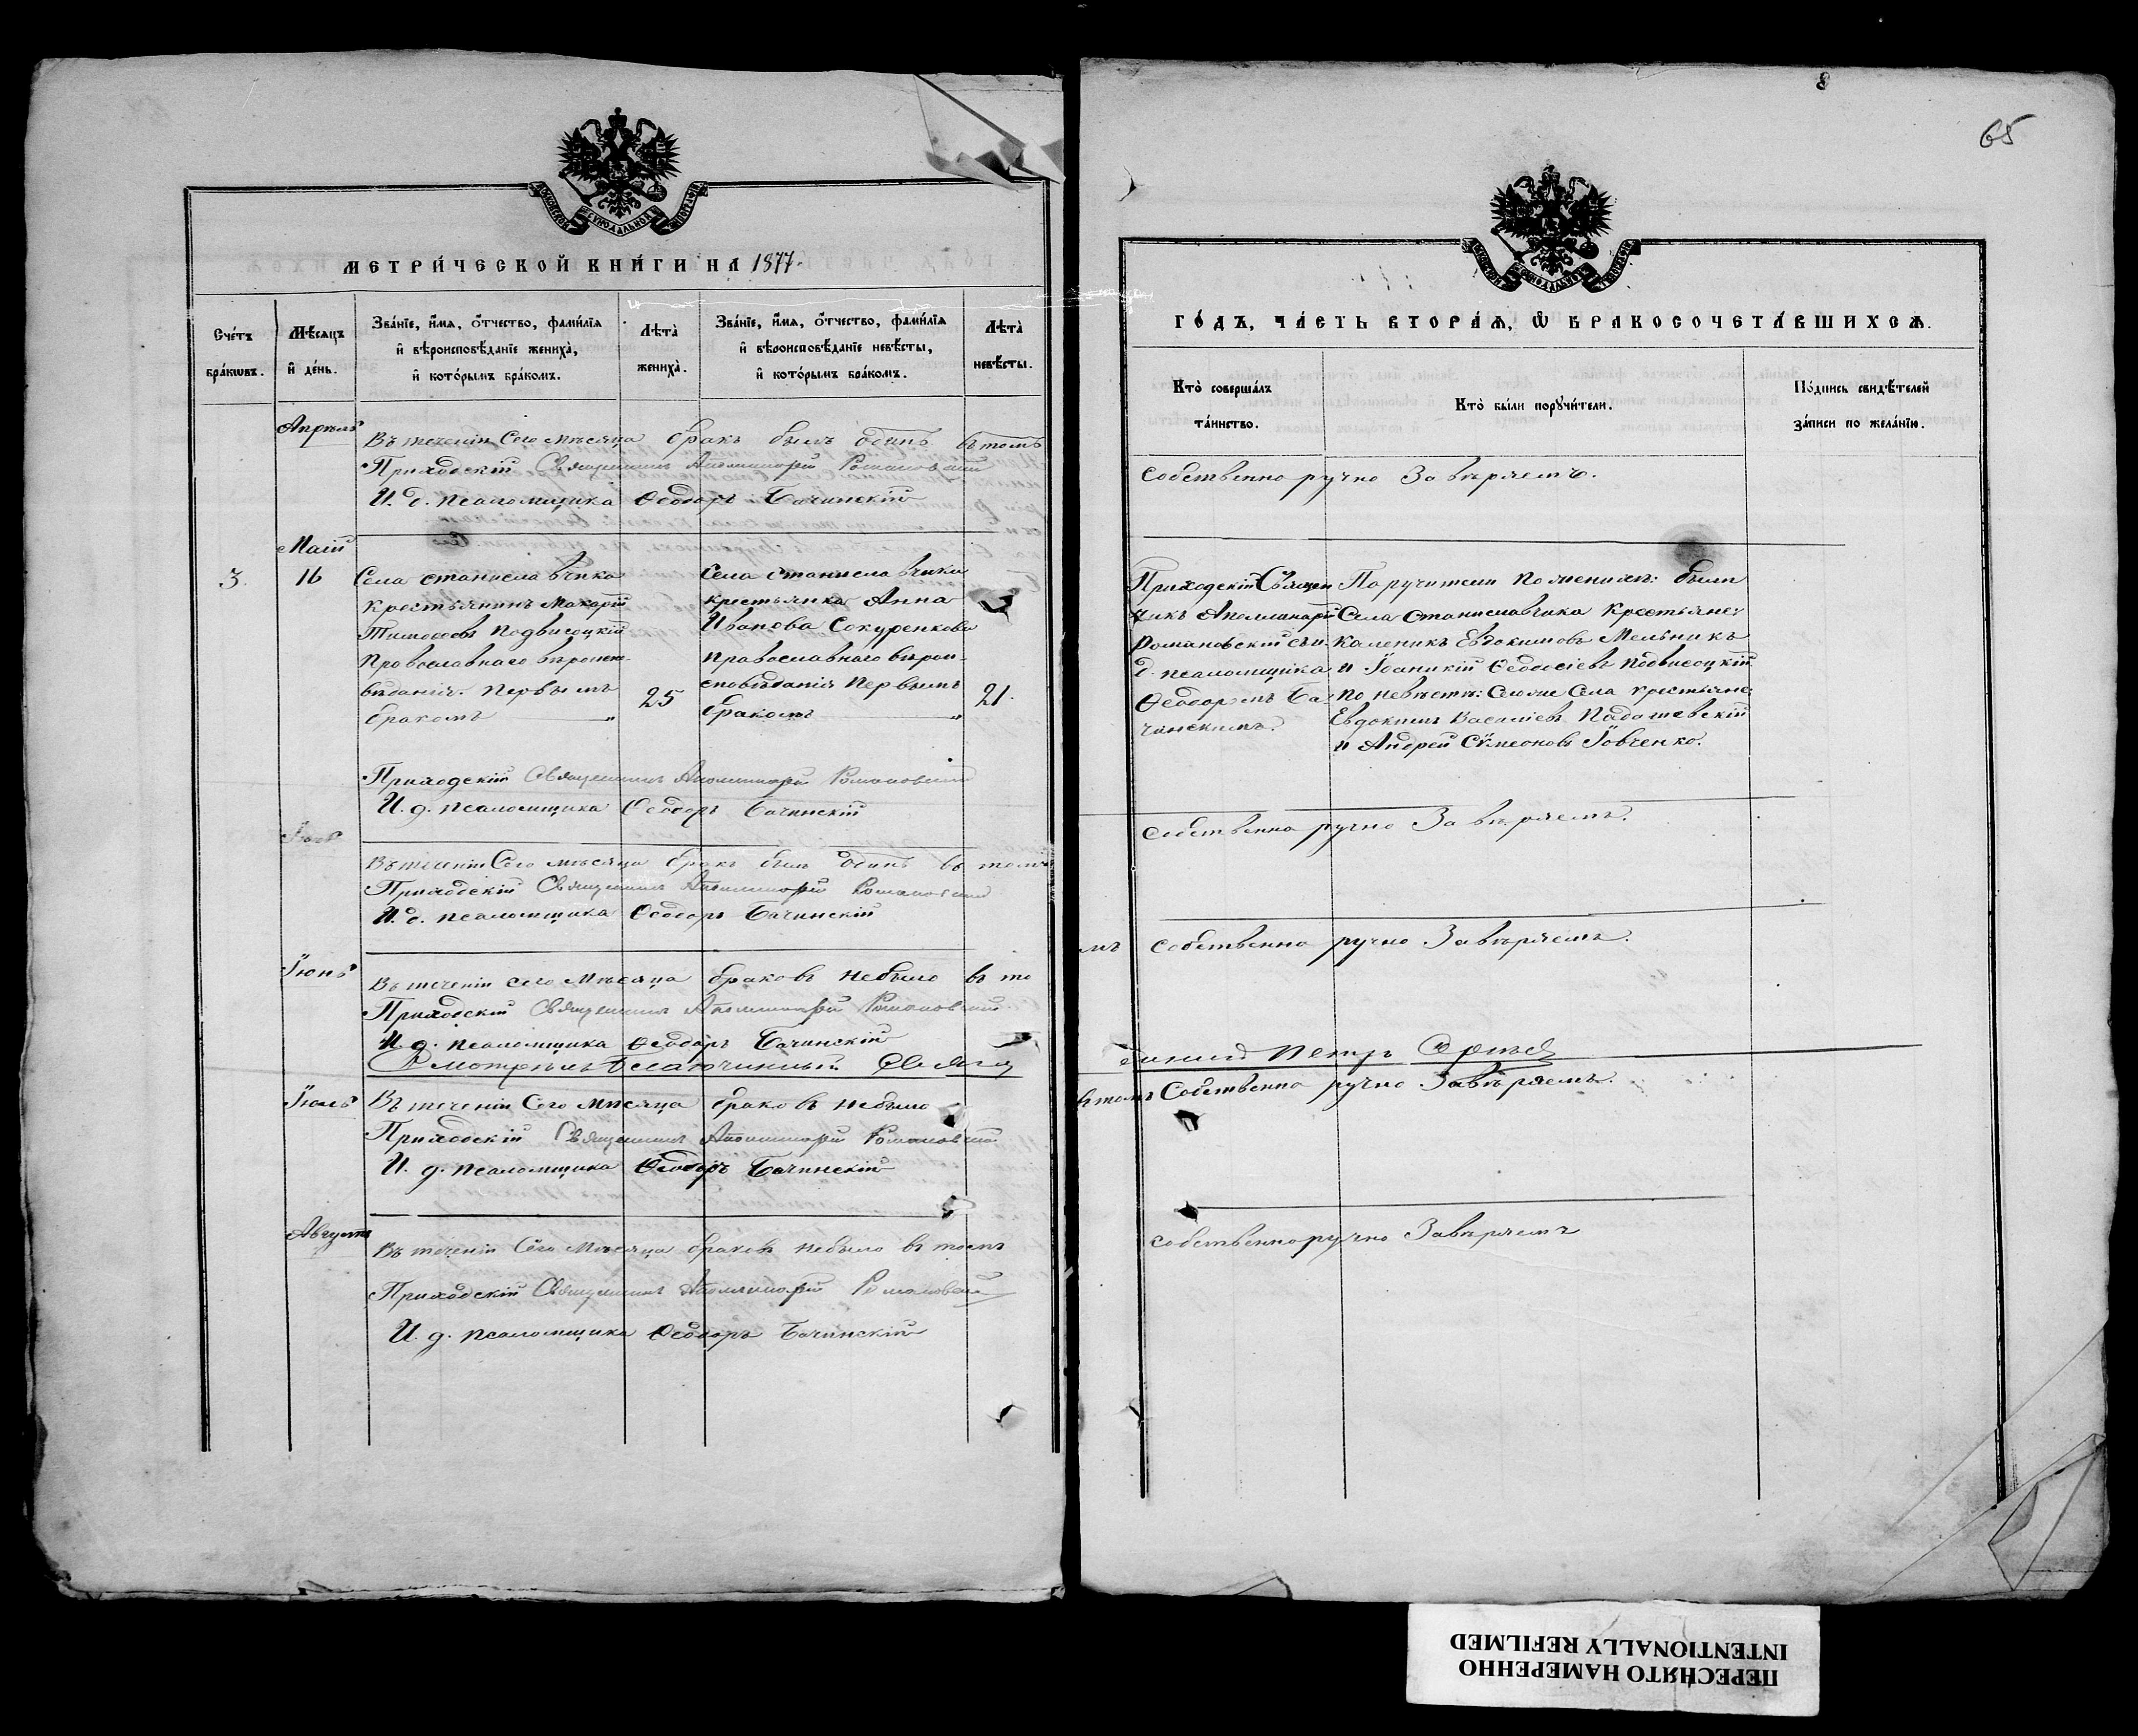 8
65
МОСКОВСКОЙ СѴНОДАЛЬНОЙ ТИПОГРАФІИ
МЕТРИ́ЧЕСКОЙ КНИ́ГИ НА 1877.
Сче́тъ бра́кѡвъ.
Мѣ́сяцъ и҆ де́нь.
Зва́нїе, и҆́мѧ, ѻ҆́тчество, фами́лїѧ
и҆ вѣроисповѣ́данїе жениха̀,
и҆ кото́рымъ бра́комъ.
Лѣта̀ жениха̀.
Зва́нїе, и҆́мѧ, ѻ҆́тчество, фами́лїѧ
и҆ вѣроисповѣ́данїе невѣ́сты,
и҆ кото́рымъ бра́комъ.
Лѣта̀ невѣ́сты.
Апрѣль
Въ теченіи Сего мѣсяца бракъ былъ одинъ въ томъ
Приходскій Священникъ Аполлинарій Романовскій
И. д. псаломщика Ѳеодоръ Бачинскій
Маій
3.
16
Села Станиславчика
крестьянинъ Макарій
Тимоѳеевъ Подвисоцкій
Православнаго вѣроиспо-
вѣданія. Первымъ
бракомъ „
25
Села Станиславчика
крестьянка Анна
Иванова Сокуренкова
Православнаго вѣрои-
сповѣданія Первымъ
бракомъ „
21.
Приходскій Священникъ Аполлинарій Романовскій
И. д. псаломщика Ѳеодоръ Бачинскій
Въ теченіи Сего мѣсяца бракъ былъ одинъ въ томъ
Приходскій Священникъ Аполлинарій Романовскій
И. д. псаломщика Ѳеодоръ Бачинскій
Іюнь
Въ теченіи сего Мѣсяца браковъ небыло въ то
Приходскій Священникъ Аполлинарій Романовскій
И. д. псаломщика Ѳеодоръ Бачинскій
Смотрѣлъ Благочинный
Іюль
Въ теченіи Сего Мѣсяца браковъ небыло
Приходскій Священникъ Аполлинарій Романовскій
И. д. псаломщика Ѳеодоръ Бачинскій
Августъ
Въ теченіи Сего Мѣсяца браковъ небыло въ томъ
Приходскій Священникъ Аполлинарій Романовскій
И. д. псаломщика Ѳеодоръ Бачинскій
МОСКОВСКОЙ СѴНОДАЛЬНОЙ ТИПОГРАФІИ
ГО́ДЪ, ЧА́СТЬ ВТОРА́Ѧ, Ѽ БРАКОСОЧЕТА́ВШИХСѦ.
Кто̀ соверша́лъ
та́инство.
Кто̀ бы́ли порꙋчи́тели.
По́дпись свидѣ́телей
за́писи по жела́нїю.
собственно ручно Завѣряемъ.
Приходскій Священ
никъ Аполлинарій
Романовскій съ и.
д. псаломщика
Ѳеодоромъ Ба-
чинскимъ.
Поручители По женихѣ: были
Села Станиславчика Крестьяне:
Каленикъ Евдокимовъ Мельникъ
и Іоаникій Ѳеодосіевъ Подвисоцкій
По невѣстѣ: Сегоже Села крестьяне:
Евдокимъ Василіевъ Падашевскій
и Андрей Сѵмеоновъ Іовченко.
собственно ручно Завѣряемъ.
мъ собственно ручно Завѣряемъ.
Петръ
въ томъ Собственно ручно Завѣряемъ.
собственноручно Завѣряемъ
ПЕРЕСНЯТО НАМЕРЕННО
INTENTIONALLY REFILMED